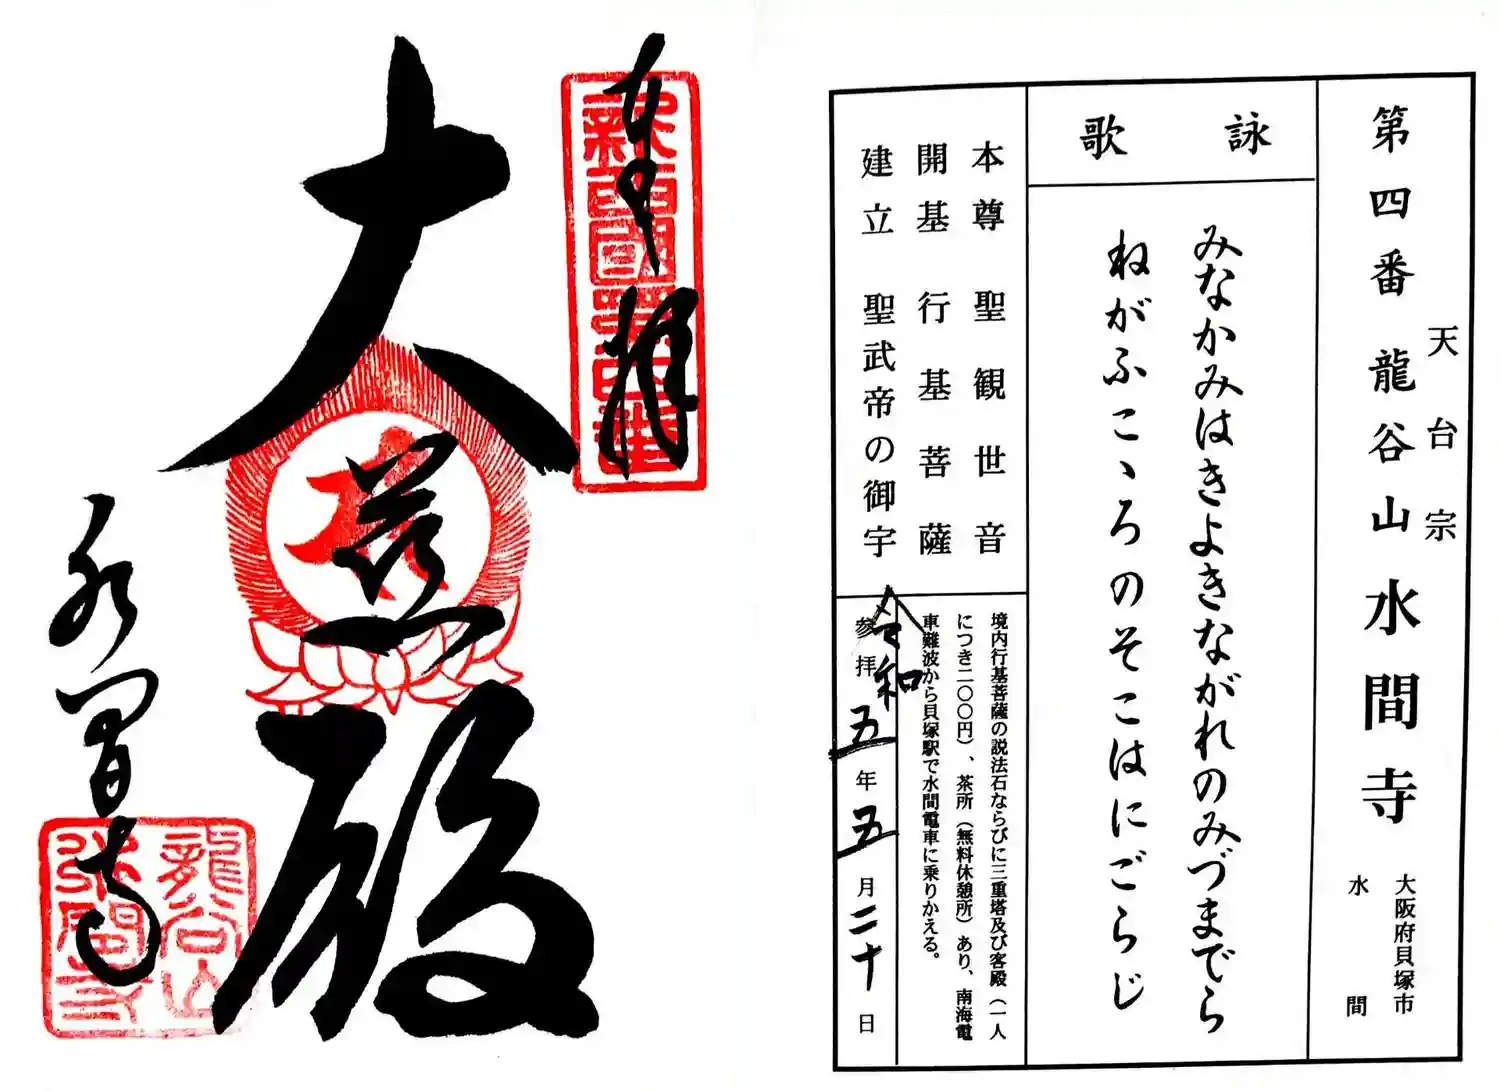 奉拝
新西国第四番
大慈殿
水間寺
龍谷山
水間寺
天台宗
第四番 龍谷山 水間寺
大阪府貝塚市
水間
詠歌
みなかみはきよきながれのみづまでら
ねがふこゝろのそこはにごらじ
本尊 聖観世音
開基 行基菩薩
建立 聖武帝の御宇
境内行基菩薩の説法石ならびに三重塔及び客殿(一人
につき二〇〇円)、茶所(無料休憩所)あり、南海電
車難波から貝塚駅で水間電車に乗りかえる。
参拝 令和五年五月二十日